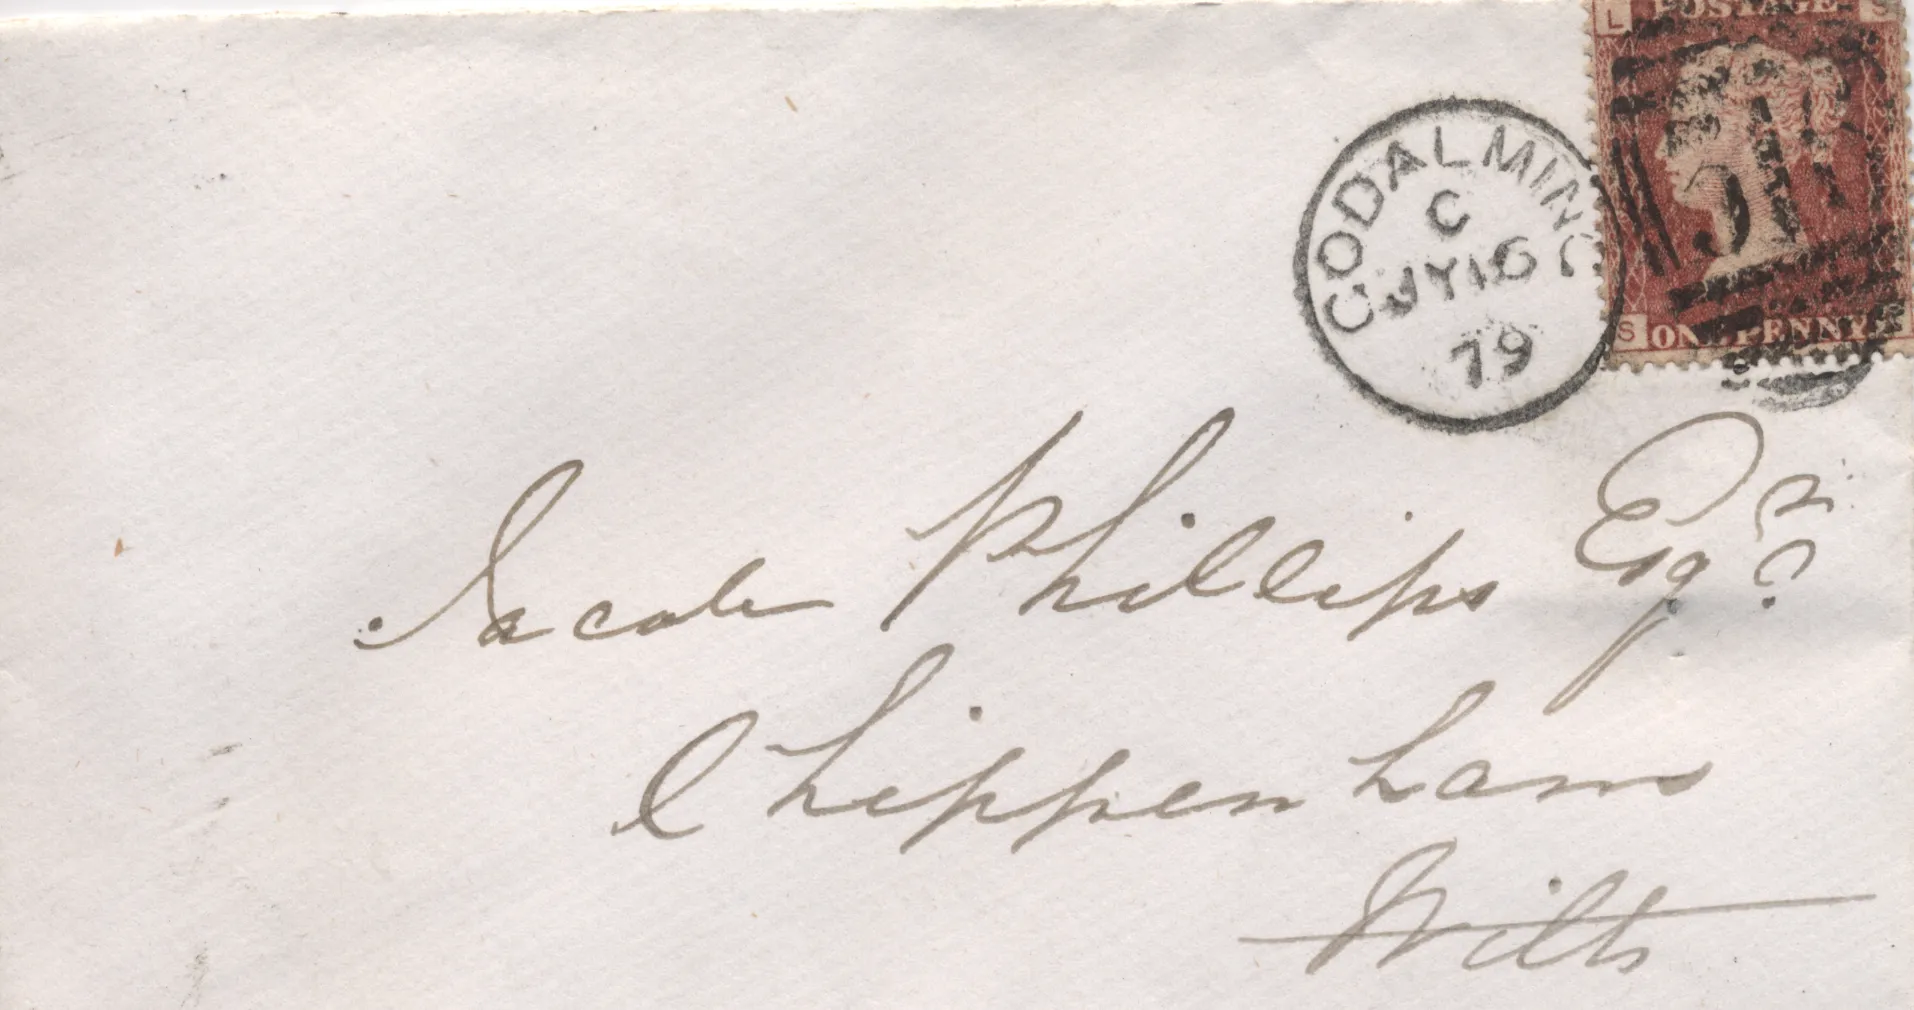 L POSTAGE S
GODALMING
C
JY 16
79
S ONE PENNY
Jacob Phillips Esqre.
Chippenham
Wilts